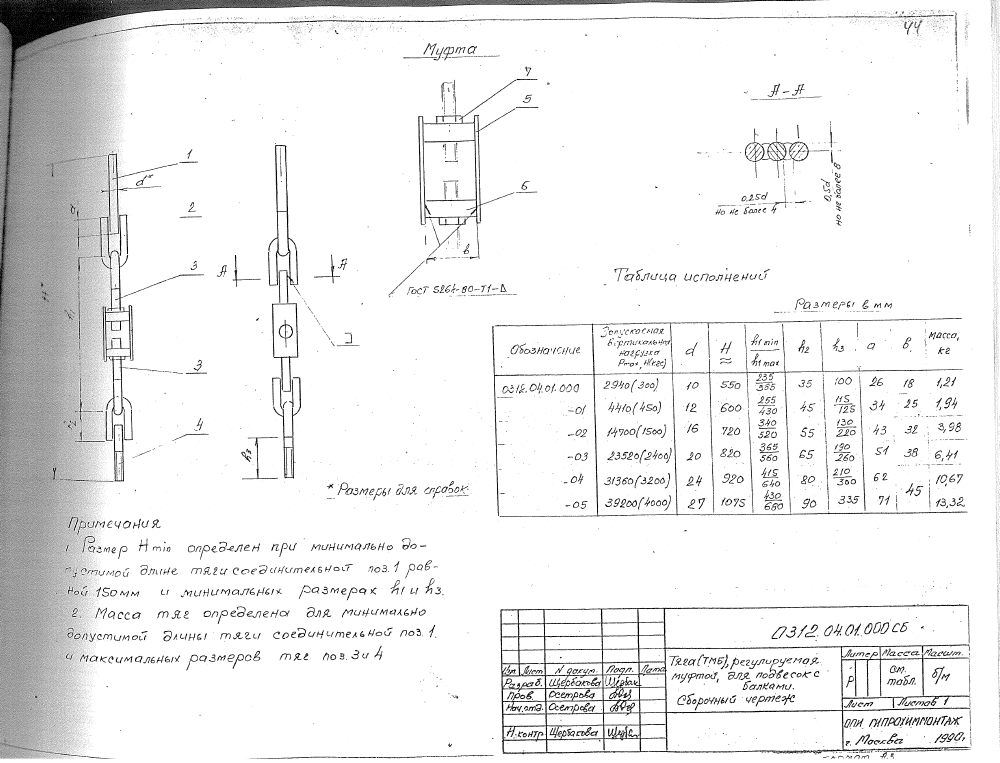 44
Муфта
7
5
6
в
ГОСТ 5264-80-Т1-Δ
А-А
0,25d
но не более 4
0,5d
но не более 8
1
d*
2
3
3
4
А
А
2
h3
* Размеры для справок
Таблица исполнений
Размеры в мм
Обозначение | Допускаемая вертикальная нагрузка Pmax, Н(кгс) | d | H ≈ | h1 min / h1 max | h2 | h3 | a | в | Масса, кг
0312.04.01.000 | 2940(300) | 10 | 550 | 235/355 | 35 | 100 | 26 | 18 | 1,21
-01 | 4410(450) | 12 | 600 | 255/430 | 45 | 115/125 | 34 | 25 | 1,94
-02 | 14700(1500) | 16 | 720 | 340/520 | 55 | 130/220 | 43 | 32 | 3,98
-03 | 23520(2400) | 20 | 820 | 365/560 | 65 | 190/260 | 51 | 38 | 6,41
-04 | 31360(3200) | 24 | 920 | 415/640 | 80 | 210/300 | 62 | 45 | 10,67
-05 | 39200(4000) | 27 | 1075 | 430/650 | 90 | 335 | 71 | 13,32
Примечания
1. Размер H min определен при минимально до-
пустимой длине тяги соединительной поз.1 рав-
ной 150мм и минимальных размерах h1 и h3.
2. Масса тяг определена для минимально
допустимой длины тяги соединительной поз.1.
и максимальных размеров тяг поз. 3 и 4
0312.04.01.000СБ
Изм Лист N докум. Подп. Дата
Разраб. Щербакова
Пров. Осетрова
Нач.отд. Осетрова
Н.контр Щербакова
Тяга(ТМБ), регулируемая
муфтой, для подвесок с
балками.
Сборочный чертеж
Литер Масса Масшт.
Р См. табл. б/м
Лист Листов 1
ГИПРОХИММОНТАЖ
г. Москва 1990г.
ФОРМАТ А3